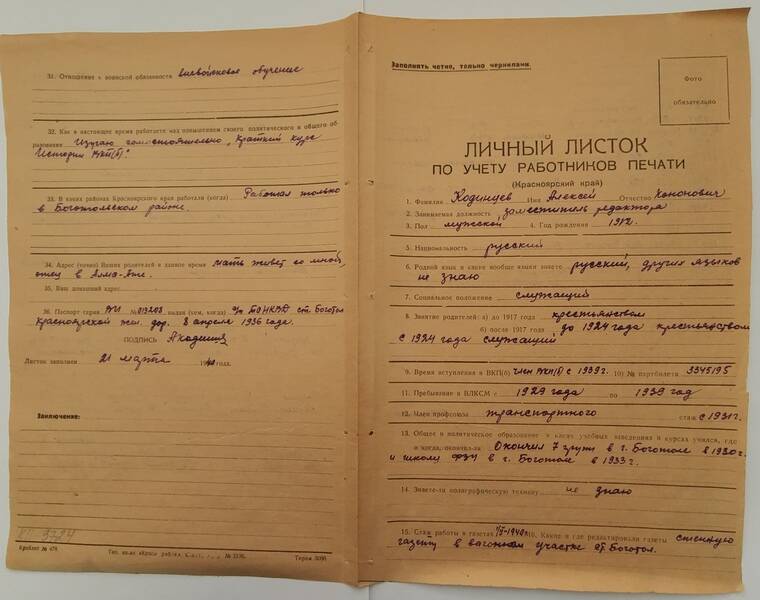 31. Отношение к воинской обязанности вневойсковое обучение
32. Как в настоящее время работаете над повышением своего политического и общего об
разования Изучаю самостоятельно „Краткий курс
Истории ВКП(б)".
33. В каких районах Красноярского края работали (когда) Работал только
в Боготольском районе.
34. Адрес (точно) Ваших родителей в данное время мать живет со мной,
отец в Алма-Ате.
35. Ваш домашний адрес
36. Паспорт серия выдан (кем, когда) ст. Боготол
Красноярской жел. дор. 8 апреля 1936 года.
ПОДПИСЬ
Листок заполнен 21 марта 1940 года.
Заключение:
Крайлит № 478 Тираж 3000
Заполнять четко, только чернилами.
Фото
обязательно
ЛИЧНЫЙ ЛИСТОК
ПО УЧЕТУ РАБОТНИКОВ ПЕЧАТИ
(Красноярский край)
1. Фамилия Кодинцев Имя Алексей Отчество Хононович
2. Занимаемая должность заместитель редактора
3. Пол мужской 4. Год рождения 1912.
5. Национальность русский
6. Родной язык и какие вообще языки знаете русский, других языков
не знаю
7. Социальное положение служащий
8. Занятие родителей: а) до 1917 года крестьянством
б) после 1917 года до 1924 года крестьянством
с 1924 года служащий
9. Время вступления в ВКП(б) член ВКП(б) с 1939 г. 10) № партбилета 3345195
11. Пребывание в ВЛКСМ с 1929 года по 1939 год
12. Член профсоюза транспортного стаж с 1931 г.
13. Общее и политическое образование в каких учебных заведениях и курсах учился, где
и когда, окончил-ла Окончил 7 групп в г. Боготоле в 1930 г.
и школу ФЗУ в г. Боготоле в 1933 г.
14. Знаете-ли полиграфическую технику не знаю
15. Стаж работы в газетах Какие и где редактировали газеты стенную
газету в вагонном участке ст. Боготол.